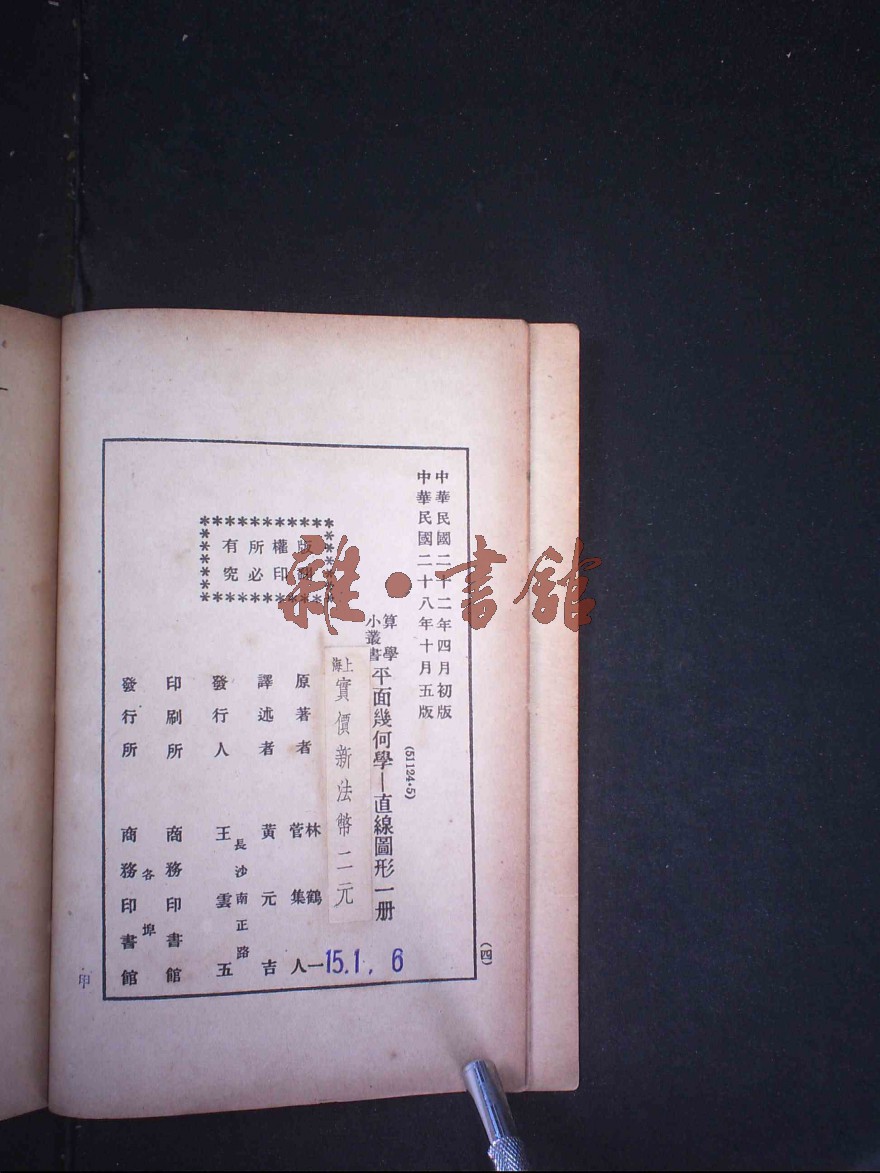 中華民國二十二年四月初版
中華民國二十八年十月五版
(四)
(51124·5)
算學
小叢書
平面幾何學—直線圖形一册
上海
實價新法幣二元
版權所有
翻印必究
原著者 林鶴一
菅集人
譯述者 黃元吉
長沙南正路
發行人 王雲五
印刷所 商務印書館
各埠
發行所 商務印書館
15.1, 6
印
雜·書館